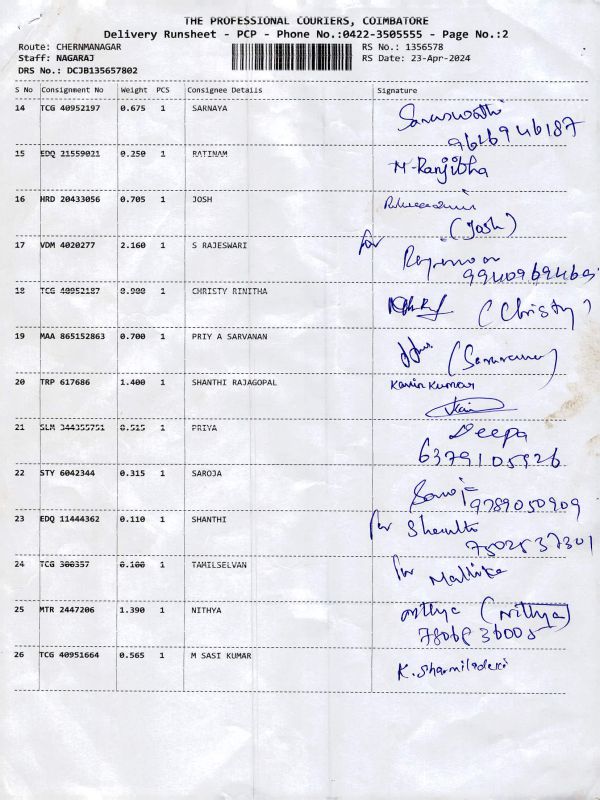 THE PROFESSIONAL COURIERS, COIMBATORE
Delivery Runsheet - PCP - Phone No.:0422-3505555 - Page No.:2
Route: CHERNMANAGAR
RS No.: 1356578
Staff: NAGARAJ
RS Date: 23-Apr-2024
DRS No.: DCJB135657802
S No Consignment No Weight PCS Consignee Details Signature
14 TCG 40952197 0.675 1 SARNAYA
Saraswathi
9626946187
15 EDQ 21559021 0.250 1 RATINAM
M-Ranjibha
16 HRD 20433056 0.705 1 JOSH
(Josh)
17 VDM 4020277 2.160 1 S RAJESWARI
for
18 TCG 40952187 0.900 1 CHRISTY RINITHA
(Christy)
19 MAA 865152863 0.700 1 PRIY A SARVANAN
20 TRP 617686 1.400 1 SHANTHI RAJAGOPAL
Kavin Kumar
21 SLM 344355751 0.515 1 PRIYA
Deepa
6379105926
22 STY 6042344 0.315 1 SAROJA
Saroja
9789050909
23 EDQ 11444362 0.110 1 SHANTHI
for Shanthi
7502537301
24 TCG 300357 0.100 1 TAMILSELVAN
for Mallika
25 MTR 2447206 1.390 1 NITHYA
nithya (Nithya)
26 TCG 40951664 0.565 1 M SASI KUMAR
K. Sharmiladevi